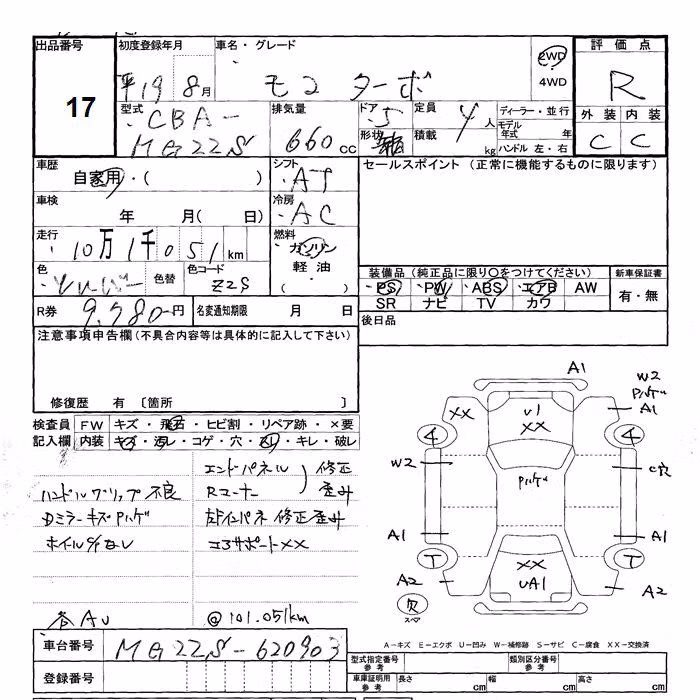 出品番号 初度登録年月 車名・グレード 2WD 評価点
17 平19 8月 モコ ターボ 4WD R
型式 排気量 ドア 5 定員 4人 ディーラー・並行 外装 内装
CBA- 660cc 形状 積載 kg モデル年式 年 C C
MG22S ハンドル 左・右
車歴 シフト セールスポイント (正常に機能するものに限ります)
自家用・( ) AT
車検 冷房
年 月( 日) AC
走行 燃料
10万1千051km ガソリン
色 色替 色コード 軽油 装備品 (純正品に限り○をつけてください) 新車保証書
シルバー Z2S ・( ) PS PW ABS エアB AW 有・無
SR ナビ TV カワ
R券 9,780円 名変通知期限 月 日 後日品
注意事項申告欄 (不具合内容等は具体的に記入して下さい)
修復歴 有 〔箇所 〕
検査員 FW キズ・飛石・ヒビ割・リペア跡・×要
記入欄 内装 キズ・汚レ・コゲ・穴・スレ・キレ・破レ
エンドパネル 修正
ハンドルグリップ不良 Rコーナー 歪み
Dミラーキズハゲ 左インパネ 修正歪み
ホイルC/なし コアサポートXX
各AU @101.051km
A1 W2
ハゲ
XX U1 A1
XX
W2 ハゲ C穴
A1 A1
T T
A2 XX A2
UA1
欠
スペア
A-キズ E-エクボ U-凹み W-補修跡 S-サビ C-腐食 XX-交換済
車台番号 MG22S-620903 型式指定番号 参考 類別区分番号 参考
登録番号 車庫証明用 参考 長さ cm 幅 cm 高さ cm